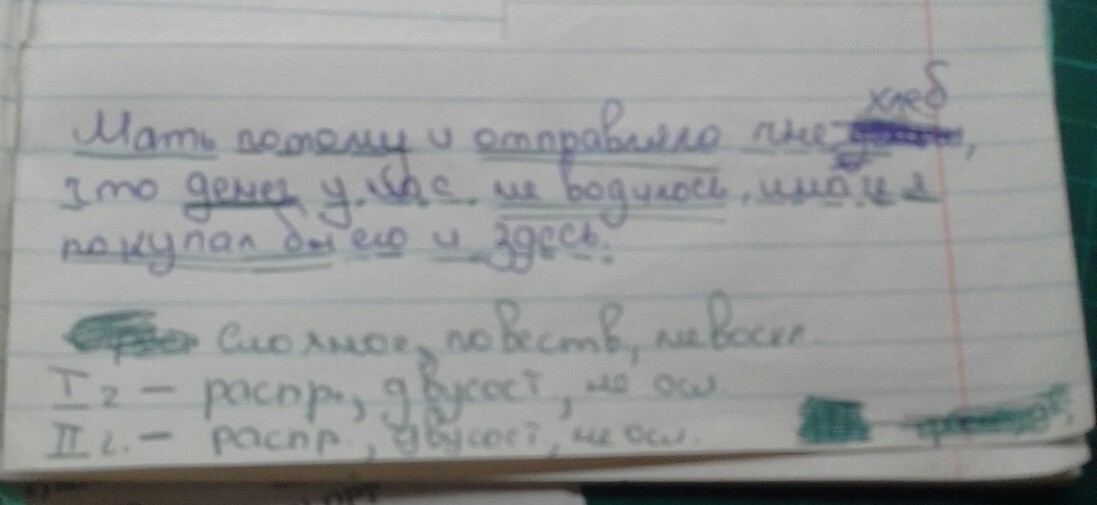 хлеб
Мать потому и отправляла мне,
что денег у нас не водилось, и я
покупал бы его и здесь.
Сложное, повеств, невоскл.
I г - распр., двусост, не осл.
II г. - распр., двусост, не осл.